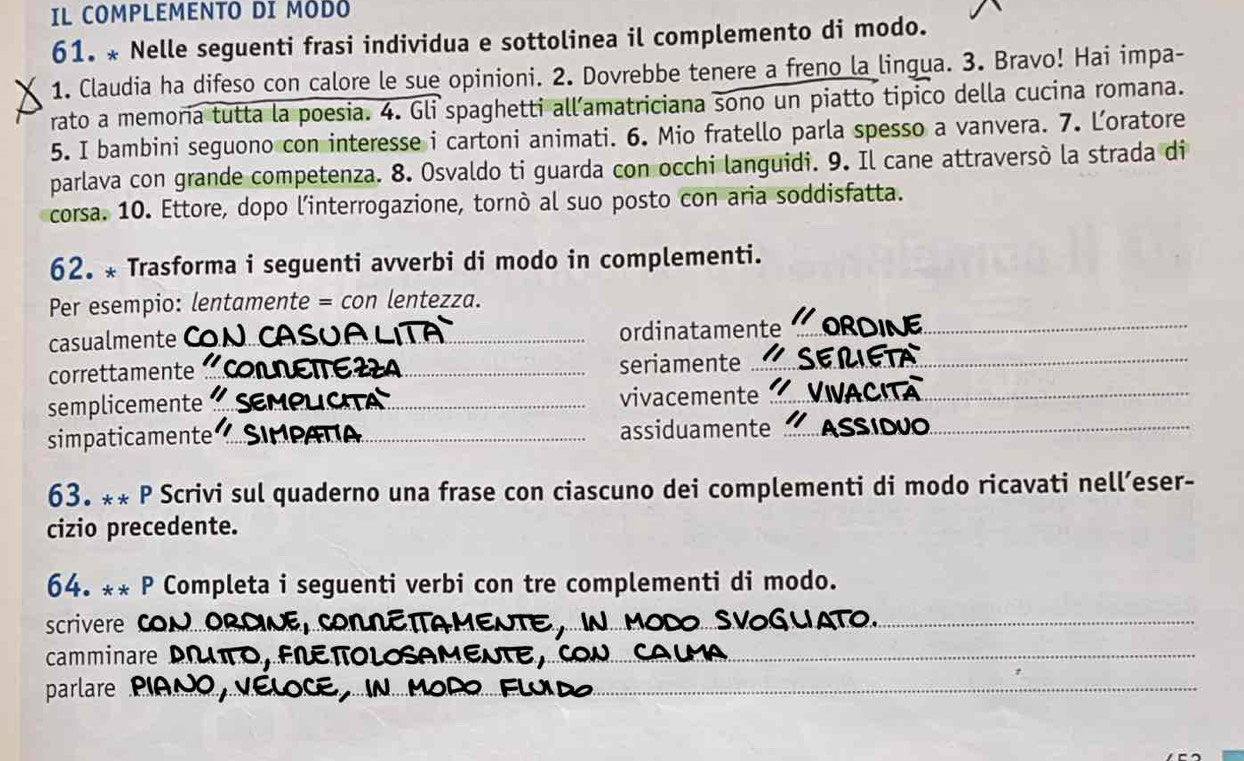 IL COMPLEMENTO DI MODO
61. * Nelle seguenti frasi individua e sottolinea il complemento di modo.
1. Claudia ha difeso con calore le sue opinioni. 2. Dovrebbe tenere a freno la lingua. 3. Bravo! Hai impa-
rato a memoria tutta la poesia. 4. Gli spaghetti all'amatriciana sono un piatto tipico della cucina romana.
5. I bambini seguono con interesse i cartoni animati. 6. Mio fratello parla spesso a vanvera. 7. L'oratore
parlava con grande competenza. 8. Osvaldo ti guarda con occhi languidi. 9. Il cane attraversò la strada di
corsa. 10. Ettore, dopo l'interrogazione, tornò al suo posto con aria soddisfatta.
62. * Trasforma i seguenti avverbi di modo in complementi.
Per esempio: lentamente = con lentezza.
casualmente CON CASUALITÀ ordinatamente " ORDINE
correttamente " CORRETTEZZA seriamente " SERIETÀ
semplicemente " SEMPLICITÀ vivacemente " VIVACITÀ
simpaticamente " SIMPATIA assiduamente " ASSIDUO
63. ** P Scrivi sul quaderno una frase con ciascuno dei complementi di modo ricavati nell'eser-
cizio precedente.
64. ** P Completa i seguenti verbi con tre complementi di modo.
scrivere CON ORDINE, CORRETTAMENTE, IN MODO SVOGLIATO.
camminare DRITTO, FRETTOLOSAMENTE, CON CALMA
parlare PIANO, VELOCE, IN MODO FLUIDO